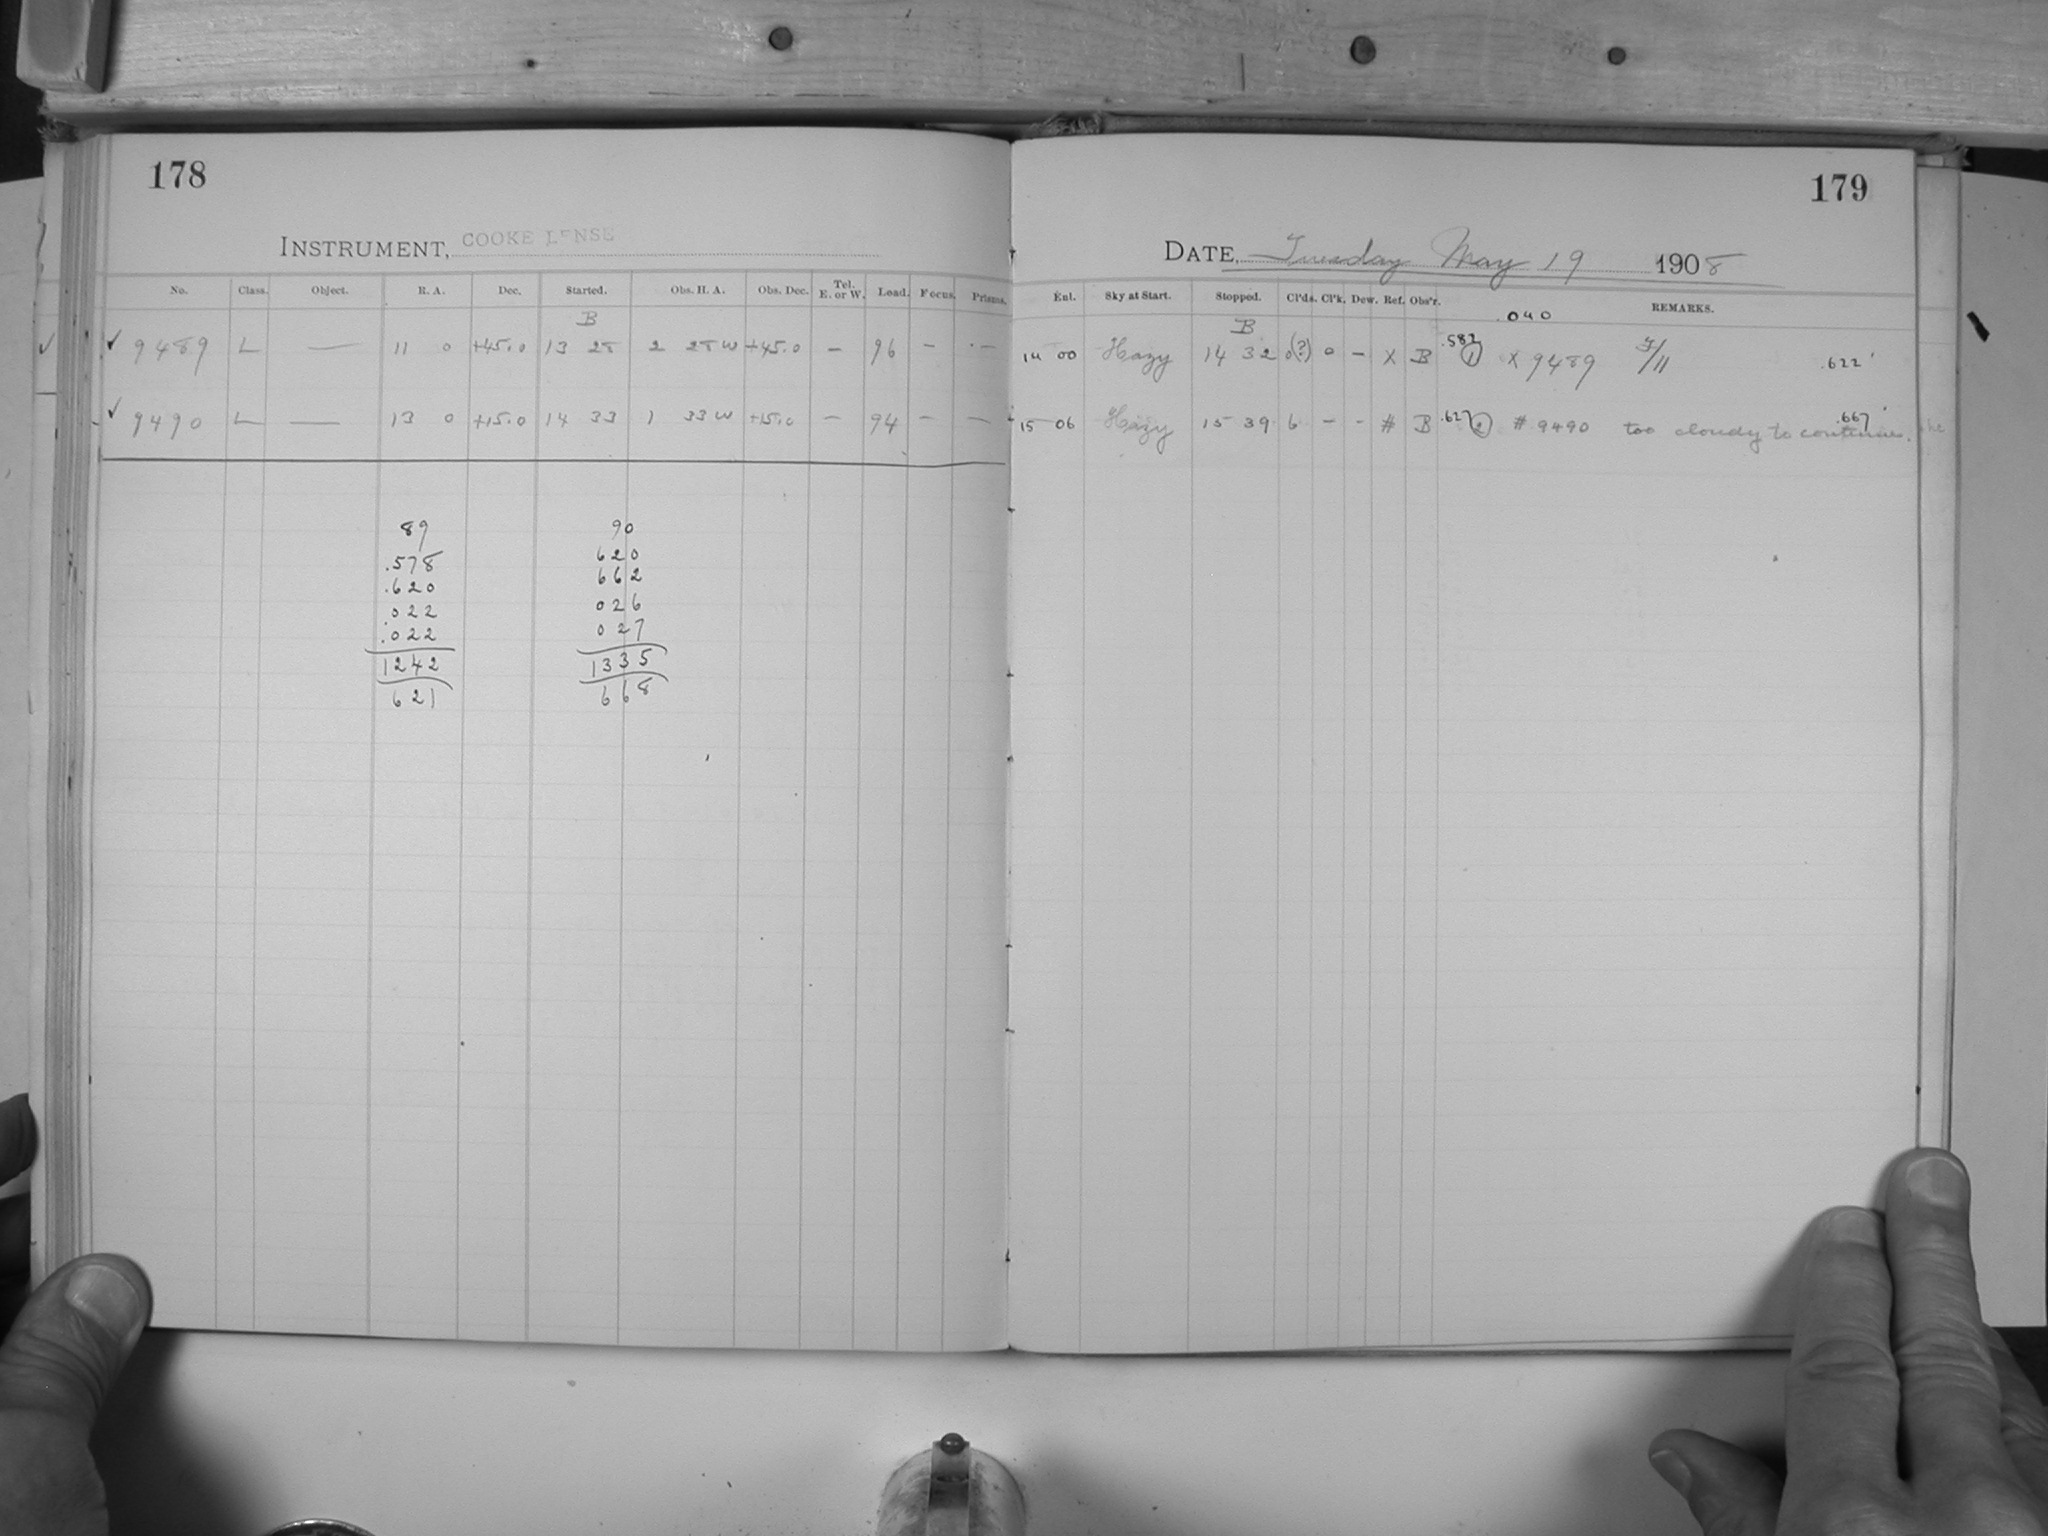 178
INSTRUMENT, COOKE LENSE
No. Class. Object. R. A. Dec. Started. Obs. H. A. Obs. Dec. Tel. E. or W. Load. Focus. Prisms.
B
✓ ✓ 9489 L — 11 0 +45.0 13 28 2 28 W +45.0 — 96 — —
✓ 9490 L — 13 0 +15.0 14 33 1 33 W +15.0 — 94 — —
89 90
.578 620
.620 662
.022 026
.022 027
1242 1335
621 668
179
DATE, Tuesday May 19 1908
Enl. Sky at Start. Stopped. Cl'ds. Cl'k. Dew. Ref. Obs'r. REMARKS.
B .040
14 00 Hazy 14 32 0(?) 0 — X B .582 ① X 9489 .622
15 06 Hazy 15 39 6 — - # B .627 ② # 9490 too cloudy to continue. .667